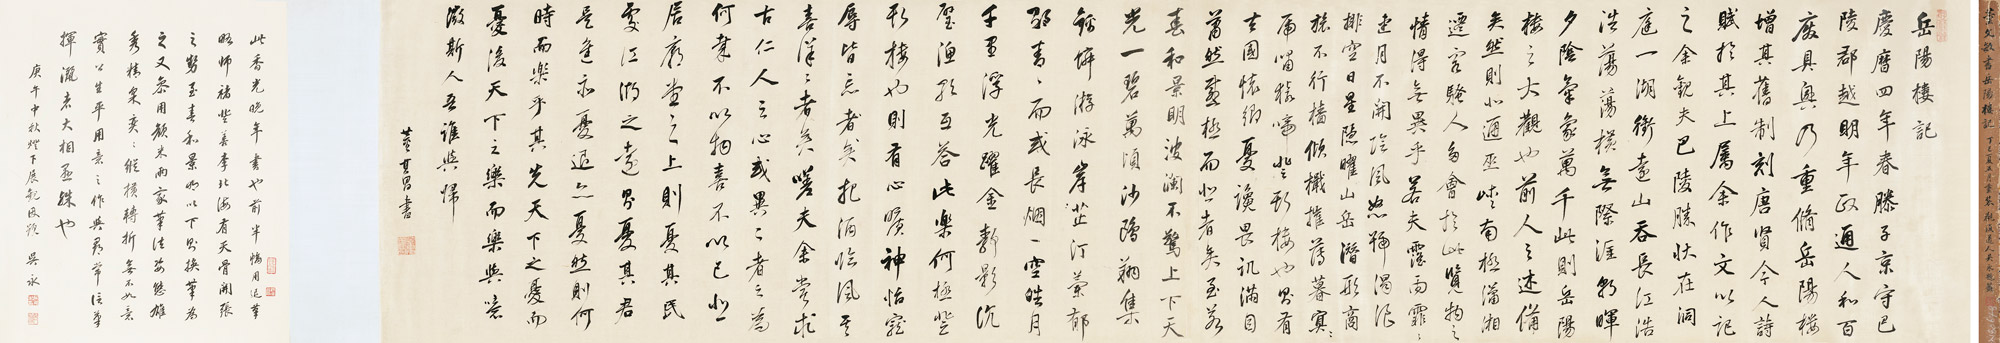 董文敏書岳陽樓記
岳陽樓記
慶曆四年春滕子京守巴
陵郡越明年政通人和百
廢具興乃重脩岳陽樓
增其舊制刻唐賢今人詩
賦於其上屬余作文以記
之余觀夫巴陵勝狀在洞
庭一湖銜遠山吞長江浩
浩蕩蕩橫無際涯朝暉
夕陰氣象萬千此則岳陽
樓之大觀也前人之述備
矣然則北通巫峽南極瀟湘
遷客騷人多會於此覽物之
情得無異乎若夫霪雨霏〻
連月不開陰風怒號濁浪
排空日星隱曜山岳潛形商
旅不行檣傾檝摧薄暮冥〻
虎嘯猿啼登斯樓也則有
去國懷鄉憂讒畏譏滿目
蕭然感極而悲者矣至若
春和景明波瀾不驚上下天
光一碧萬頃沙鷗翔集
錦鱗游泳岸芷汀蘭郁
郁青〻而或長烟一空皓月
千里浮光躍金靜影沉
璧漁歌互答此樂何極登
斯樓也則有心曠神怡寵
辱皆忘者矣把酒臨風其
喜洋〻者矣嗟夫余嘗求
古仁人之心或異二者之為
何哉不以物喜不以己悲
居廟堂之上則憂其民
處江湖之遠則憂其君
是進亦憂退亦憂然則何
時而樂乎其先天下之憂而
憂後天下之樂而樂與噫
微斯人吾誰與歸
董其昌書
此香光晚年書也前半幅用徐筆
略師褚登善李北海有天骨開張
之勢至春和景明以下則換筆為
之又參用顏米兩家筆法姿態雄
秀精采奕〻縱橫轉折無不如意
實公生平用意之作與尋常信筆
揮灑者大相逕殊也
庚午中秋燈下展觀後題 吳永